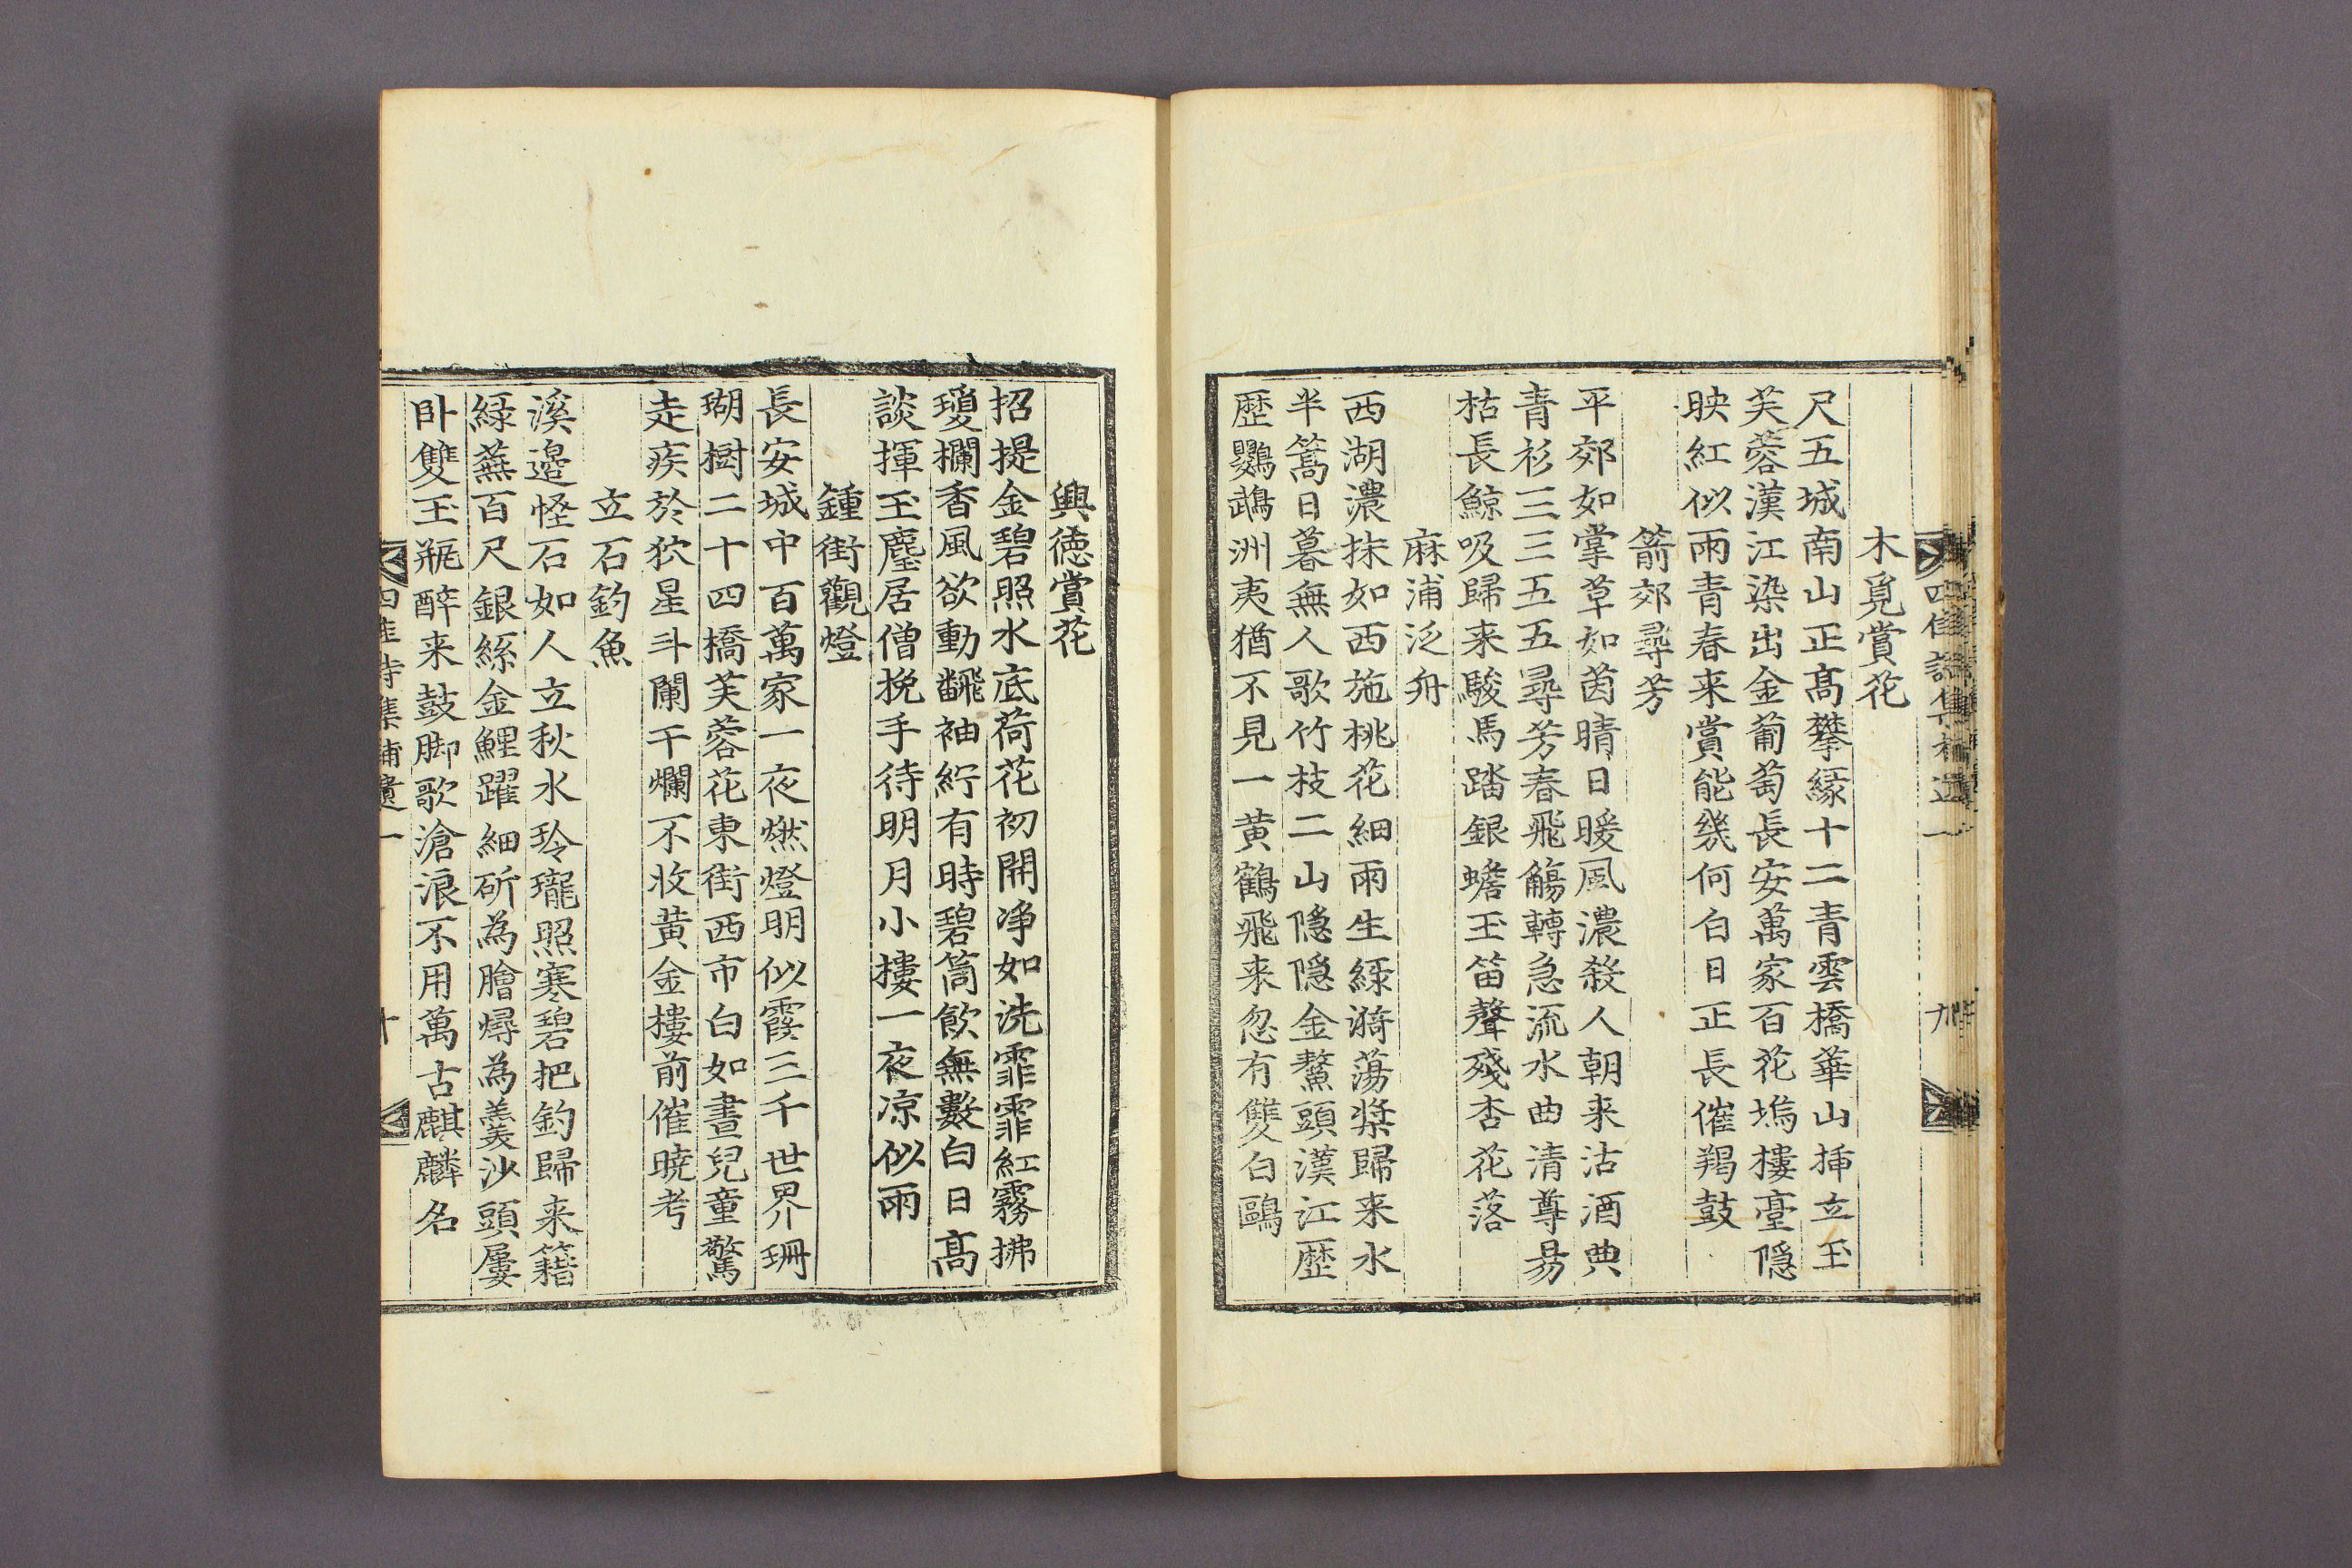 四佳詩集補遺一
九
木覓賞花
尺五城南山正髙攀緣十二青雲橋華山揷立玉
芙蓉漢江染出金葡萄長安萬家百花塢樓臺隱
映紅似雨青春来賞能幾何白日正長催羯鼓
箭郊尋芳
平郊如掌草如茵晴日暖風濃殺人朝来沽酒典
青衫三三五五尋芳春飛觴轉急流水曲清尊昜
枯長鯨吸歸来駿馬踏銀蟾玉笛聲殘杏花落
麻浦泛舟
西湖濃抹如西施桃花細雨生綠漪蕩槳歸来水
半篙日暮無人歌竹枝二山隠隠金鰲頭漢江歷
歷鸚鵡洲夷猶不見一黄鶴飛来忽有雙白鷗
興徳賞花
招提金碧照水底荷花初開净如洗霏霏紅霧拂
瓊欄香風欲動飜袖紵有時碧筒飮無數白日髙
談揮玉麈居僧挽手待明月小樓一夜凉似雨
鍾街觀燈
長安城中百萬家一夜燃燈明似霞三千世界珊
瑚樹二十四橋芙蓉花東街西市白如晝兒童驚
走疾於狖星斗闌干爛不收黄金樓前催曉考
立石釣魚
溪邉怪石如人立秋水玲瓏照寒碧把釣歸来籍
綠蕪百尺銀絲金鯉躍細斫為膾燖為羹沙頭屢
卧雙玉甁醉来鼓脚歌滄浪不用萬古麒麟名
四佳詩集補遺一
十